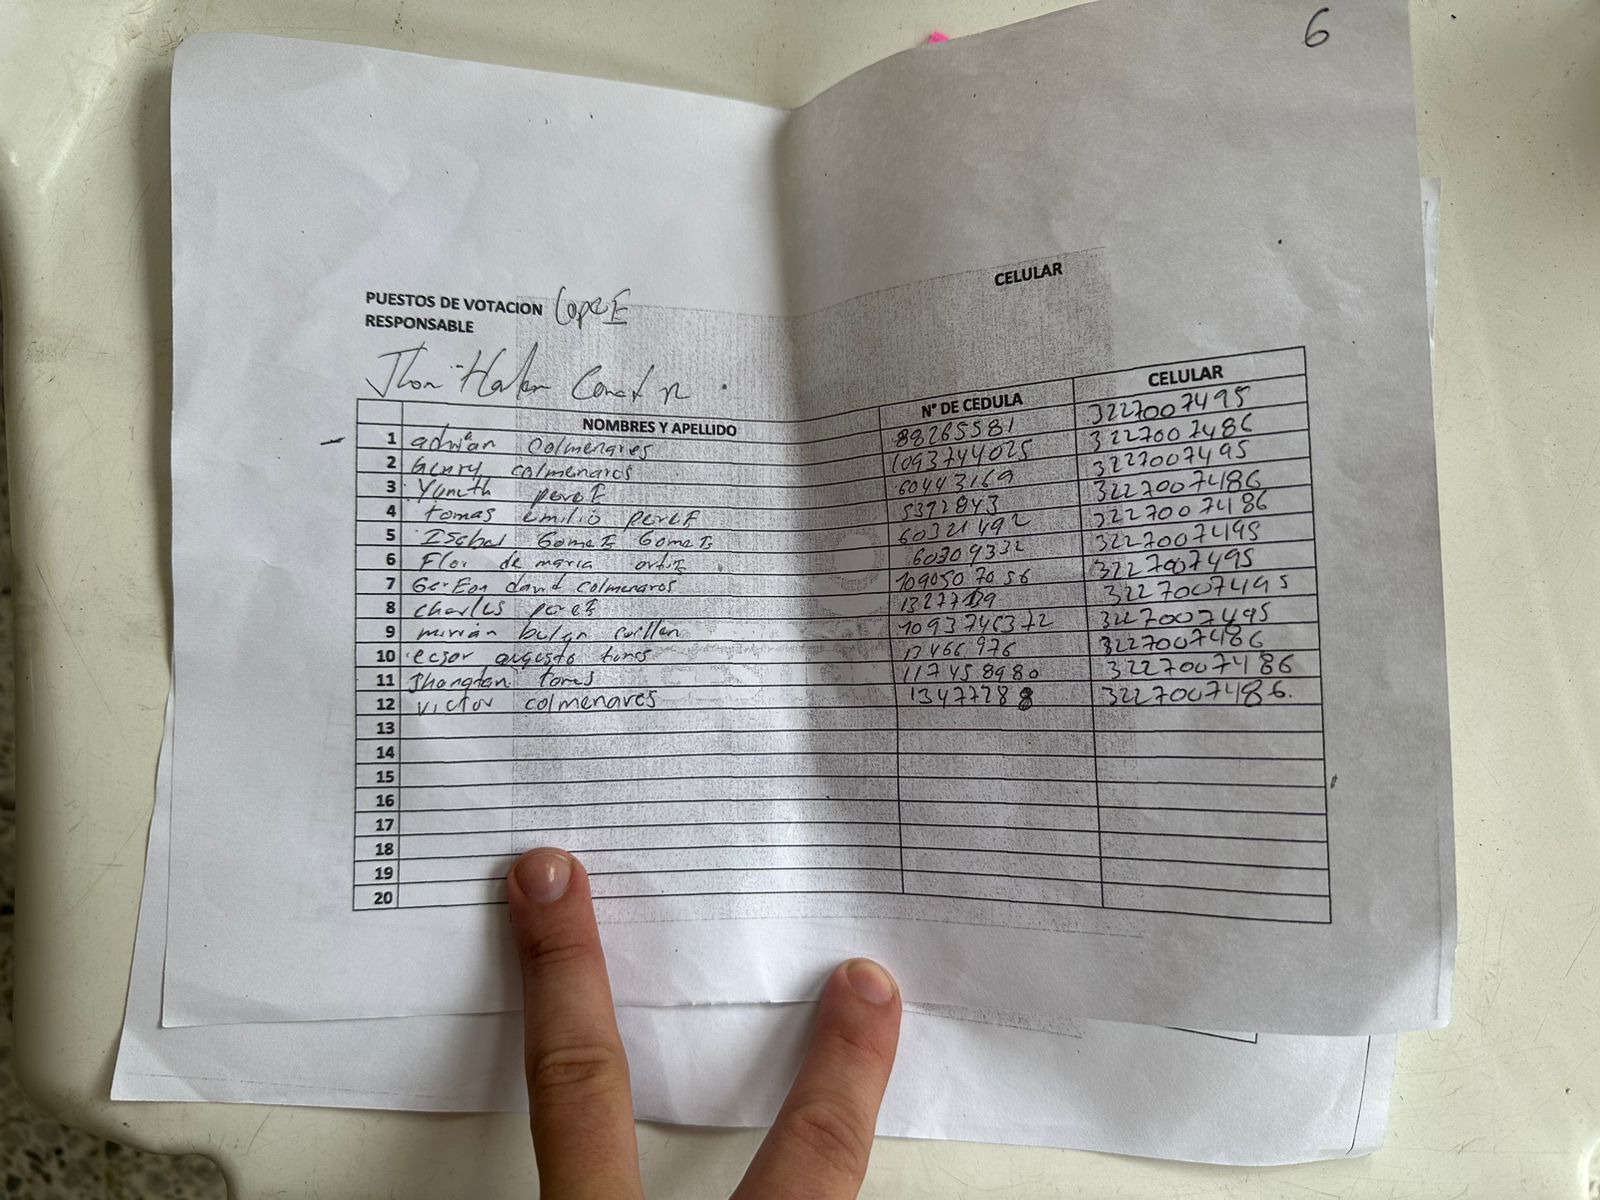 6
CELULAR
PUESTOS DE VOTACION LopeE
RESPONSABLE
Jhon
NOMBRES Y APELLIDO N° DE CEDULA CELULAR
1 adrian colmenares 88265581 3227007495
2 Genry colmenares 1093744025 3227007486
3 Yaneth pereE 60443169 3227007495
4 tomas emilio pereE 5372843 3227007486
5 ISabel GomeE GomeE 60321492 3227007486
6 Flor de maria ortiE 60309332 3227007495
7 GerEon david colmenares 1090507056 3227007495
8 charles pereE 3227007495
9 mirian belen cuillen 1093746372 3227007495
10 ecsor augusto torres 13466976 3227007486
11 Jhonatan torres 117458980 3227007486
12 victor colmenares 13477288 3227007486.
13
14
15
16
17
18
19
20